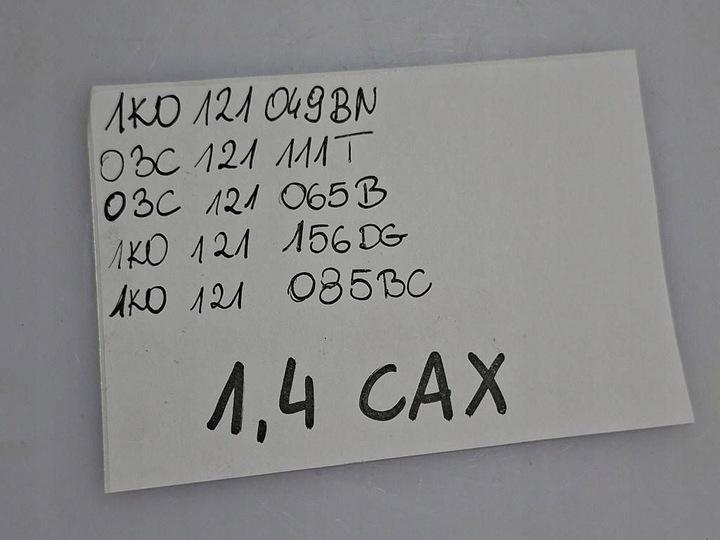 1K0 121 049BN
03C 121 111T
03C 121 065B
1K0 121 156DG
1K0 121 085BC
1,4 CAX